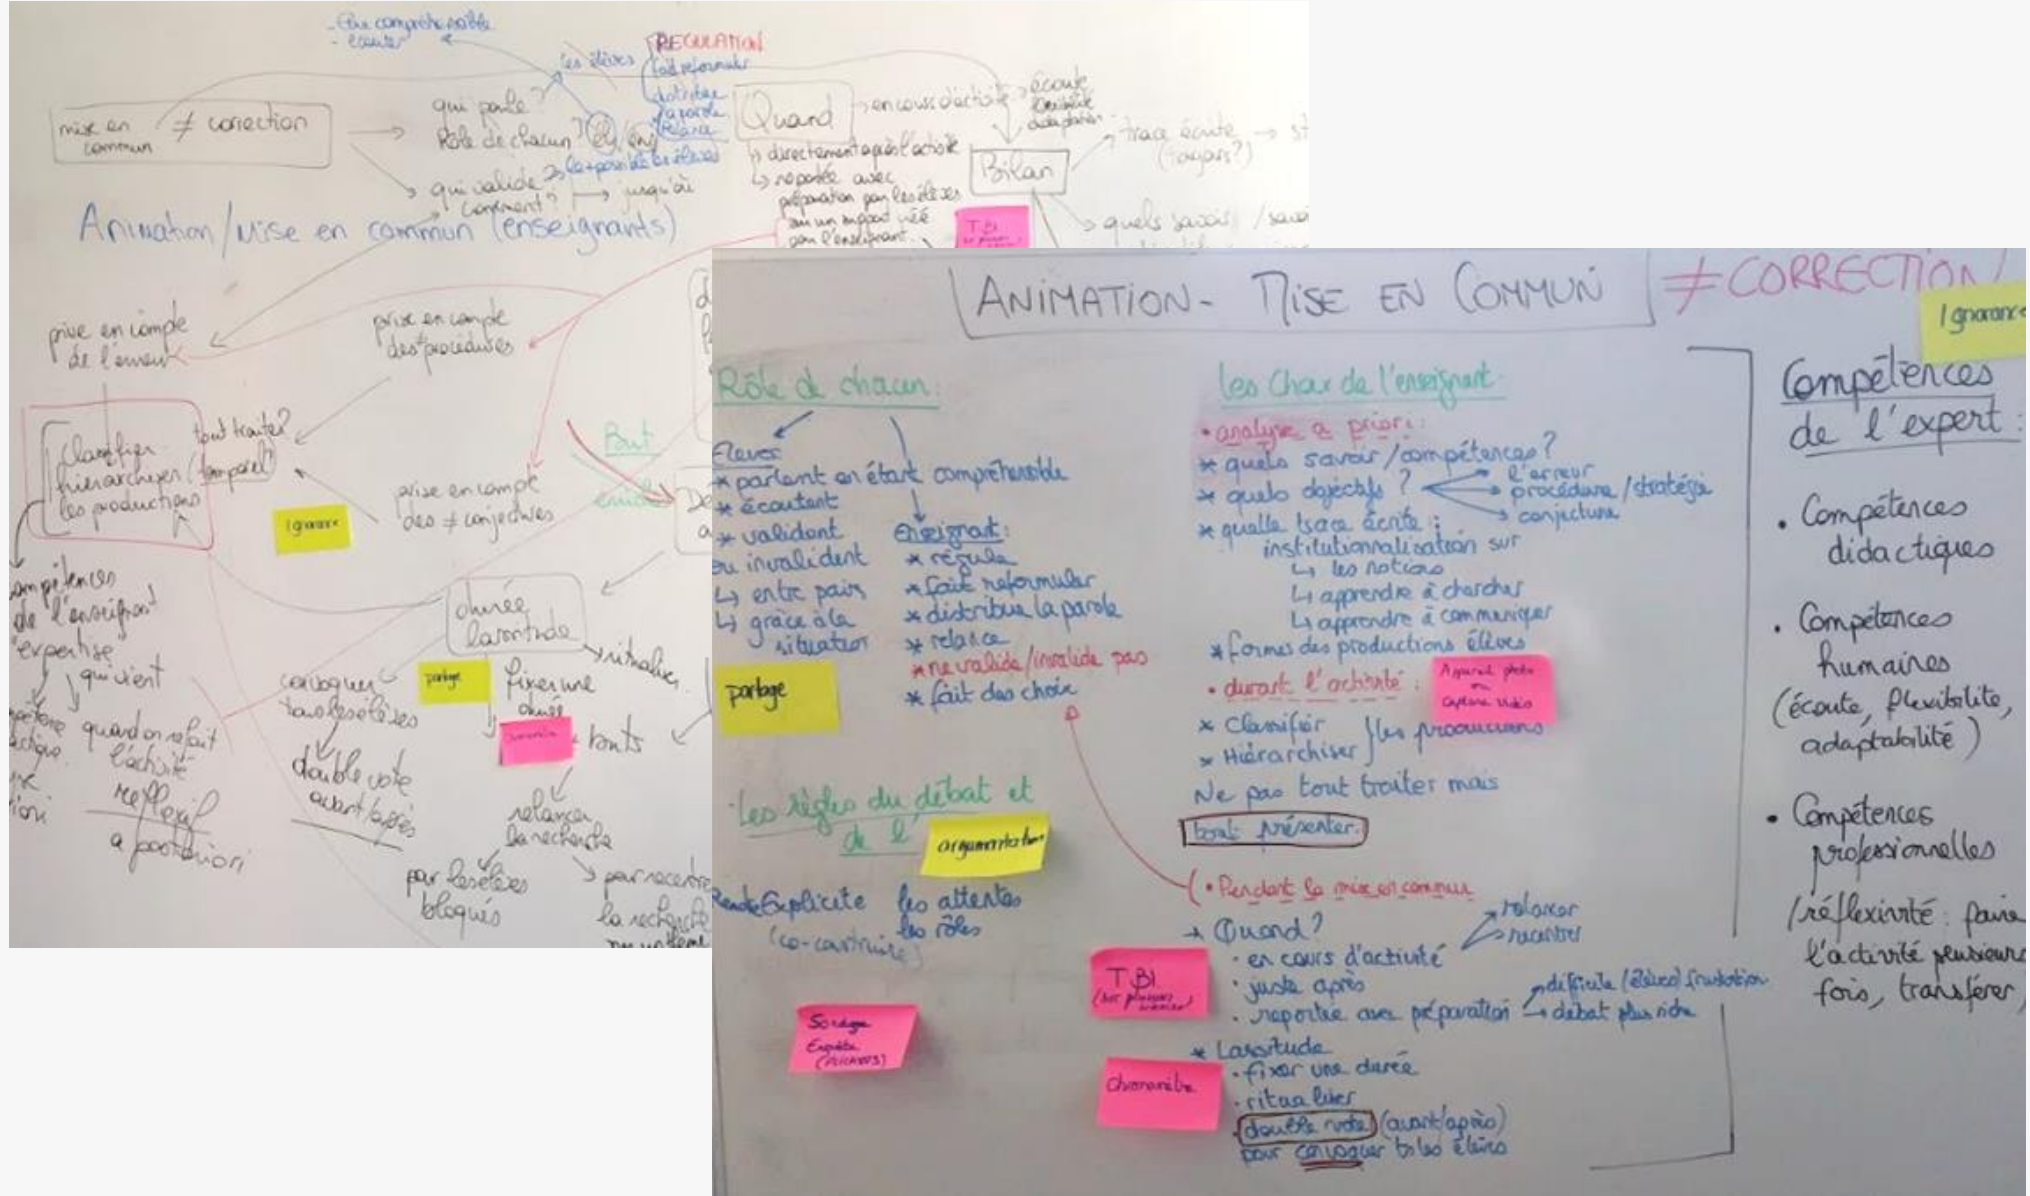 - être compréhensible
- écouter
les élèves
REGULATION
fait reformuler
distribue
la parole
relance
mise en
commun
≠ correction
qui parle?
Rôle de chacun?
qui valide
comment?
jusqu'où
Quand
en cours d'activité
↳ directement après l'activité
↳ reportée avec
préparation par les élèves
ou un support créé
par l'enseignant.
écoute
flexibilité
adaptation
Bilan
trace écrite
(toujours?)
quels savoirs
TBI
Animation/Mise en commun (enseignants)
prise en compte
de l'erreur
prise en compte
des ≠ procédures
Classifier
hiérarchiser
les productions
tout traiter?
(temporel)
prise en compte
des ≠ conjectures
Ignorance
But
compétences
de l'enseignant
expertise
qui vient
quand on refait
l'activité
réflexif
a posteriori
durée
lassitude
ritualiser
partage
fixer une
durée
convoquer
tous les élèves
double vote
avant/après
relancer
la recherche
par les élèves
bloqués
par recentrer
la recherche
ANIMATION - MISE EN COMMUN
≠ CORRECTION
Ignorance
Rôle de chacun:
Elèves
* parlent en étant compréhensible
* écoutent
* valident
ou invalident
↳ entre pairs
↳ grâce à la
situation
Enseignant:
* régule
* fait reformuler
* distribue la parole
* relance
* ne valide/invalide pas
* fait des choix
partage
Les règles du débat et
de l'
argumentation
Rendre Explicite
les attentes
les rôles
(co-construire)
Sondage
Enquête
(PLICKERS)
Les Choix de l'enseignant:
• analyse a priori:
* quels savoir/compétences?
* quels objectifs?
l'erreur
procédure/stratégie
conjecture
* quelle trace écrite:
institutionnalisation sur
↳ les notions
↳ apprendre à chercher
↳ apprendre à communiquer
* formes des productions élèves
• durant l'activité:
Appareil photo
Capture vidéo
* Classifier
* Hiérarchiser
les productions
Ne pas tout traiter mais
tout présenter.
• Pendant la mise en commun
→ Quand?
• en cours d'activité
relancer
recentrer
• juste après
• reportée avec préparation
difficile (élèves) frustration
débat plus riche
TBI
* Lassitude
• fixer une durée
• ritualiser
• double vote (avant/après)
pour convoquer ts les élèves
Chronomètre
Compétences
de l'expert:
• Compétences
didactiques
• Compétences
humaines
(écoute, flexibilité,
adaptabilité)
• Compétences
professionnelles
(réflexivité: faire
l'activité plusieurs
fois, transférer)